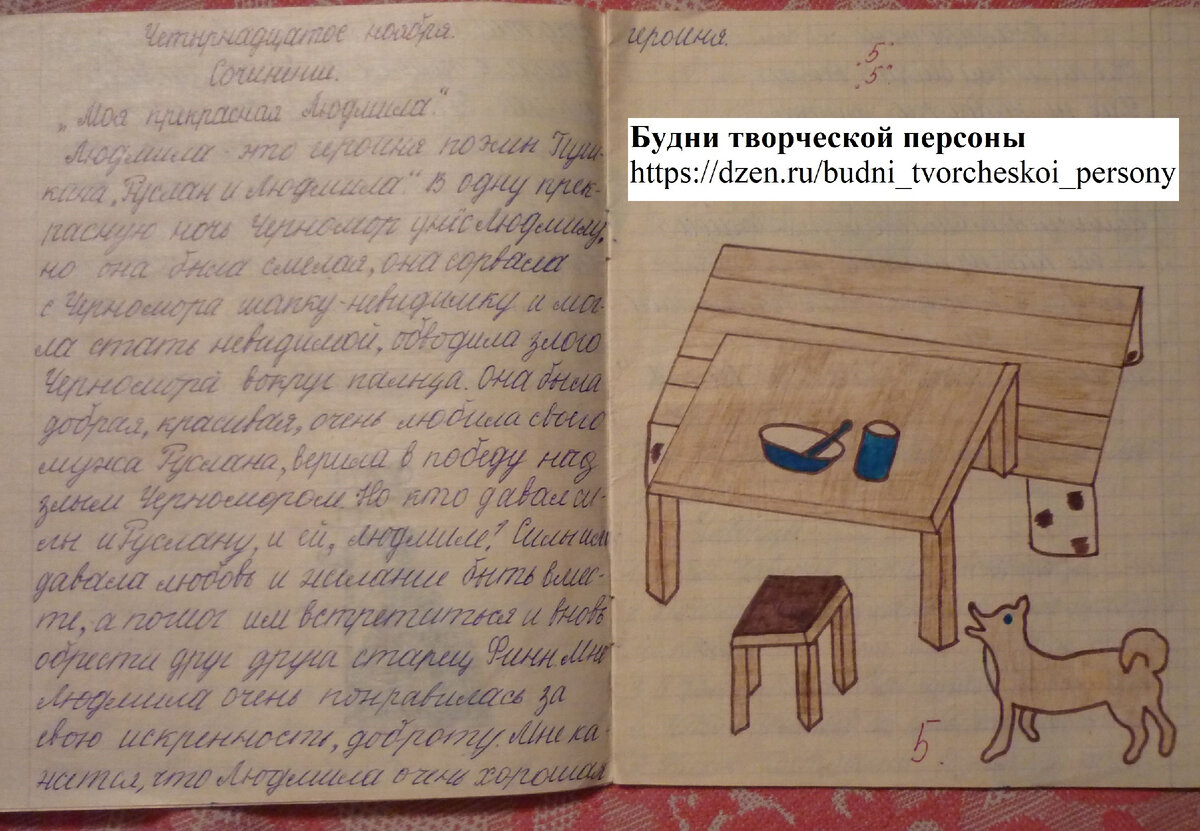 Четырнадцатое ноября.
Сочинение.
„Моя прекрасная Людмила."
Людмила - это героиня поэмы Пуш-
кина „Руслан и Людмила." В одну прек-
расную ночь Черномор унёс Людмилу,
но она была смелая, она сорвала
с Черномора шапку-невидимку и мог-
ла стать невидимой, обводила злого
Черномора вокруг пальца. Она была
добрая, красивая, очень любила своего
мужа Руслана, верила в победу над
злым Черномором. Но кто давал си-
лы и Руслану, и ей, Людмиле? Силы им
давала любовь и желание быть вмес-
те, а помог им встретиться и вновь
обрести друг друга старец Финн. Мне
Людмила очень понравилась за
свою искренность, доброту. Мне ка-
жется, что Людмила очень хорошая
героиня.
„5"
„5"
Будни творческой персоны
https://dzen.ru/budni_tvorcheskoi_persony
5.